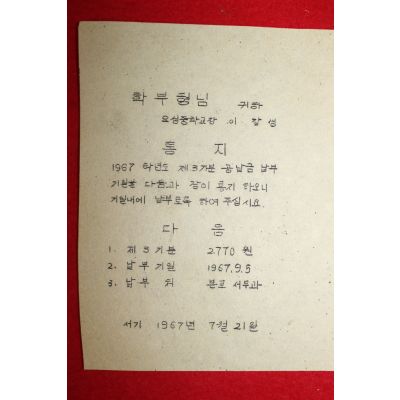 학부형님 귀하
유성중학교장 이 창 성
통 지
1967 학년도 제3기분 공납금 납부
기일을 다음과 같이 통지 하오니
기일내에 납부토록 하여 주십시요.
다 음
1. 제 3 기 분 2.770 원
2. 납 부 기 일 1967.9.5
3. 납 부 처 본교 서무과
서기 1967년 7월 21일